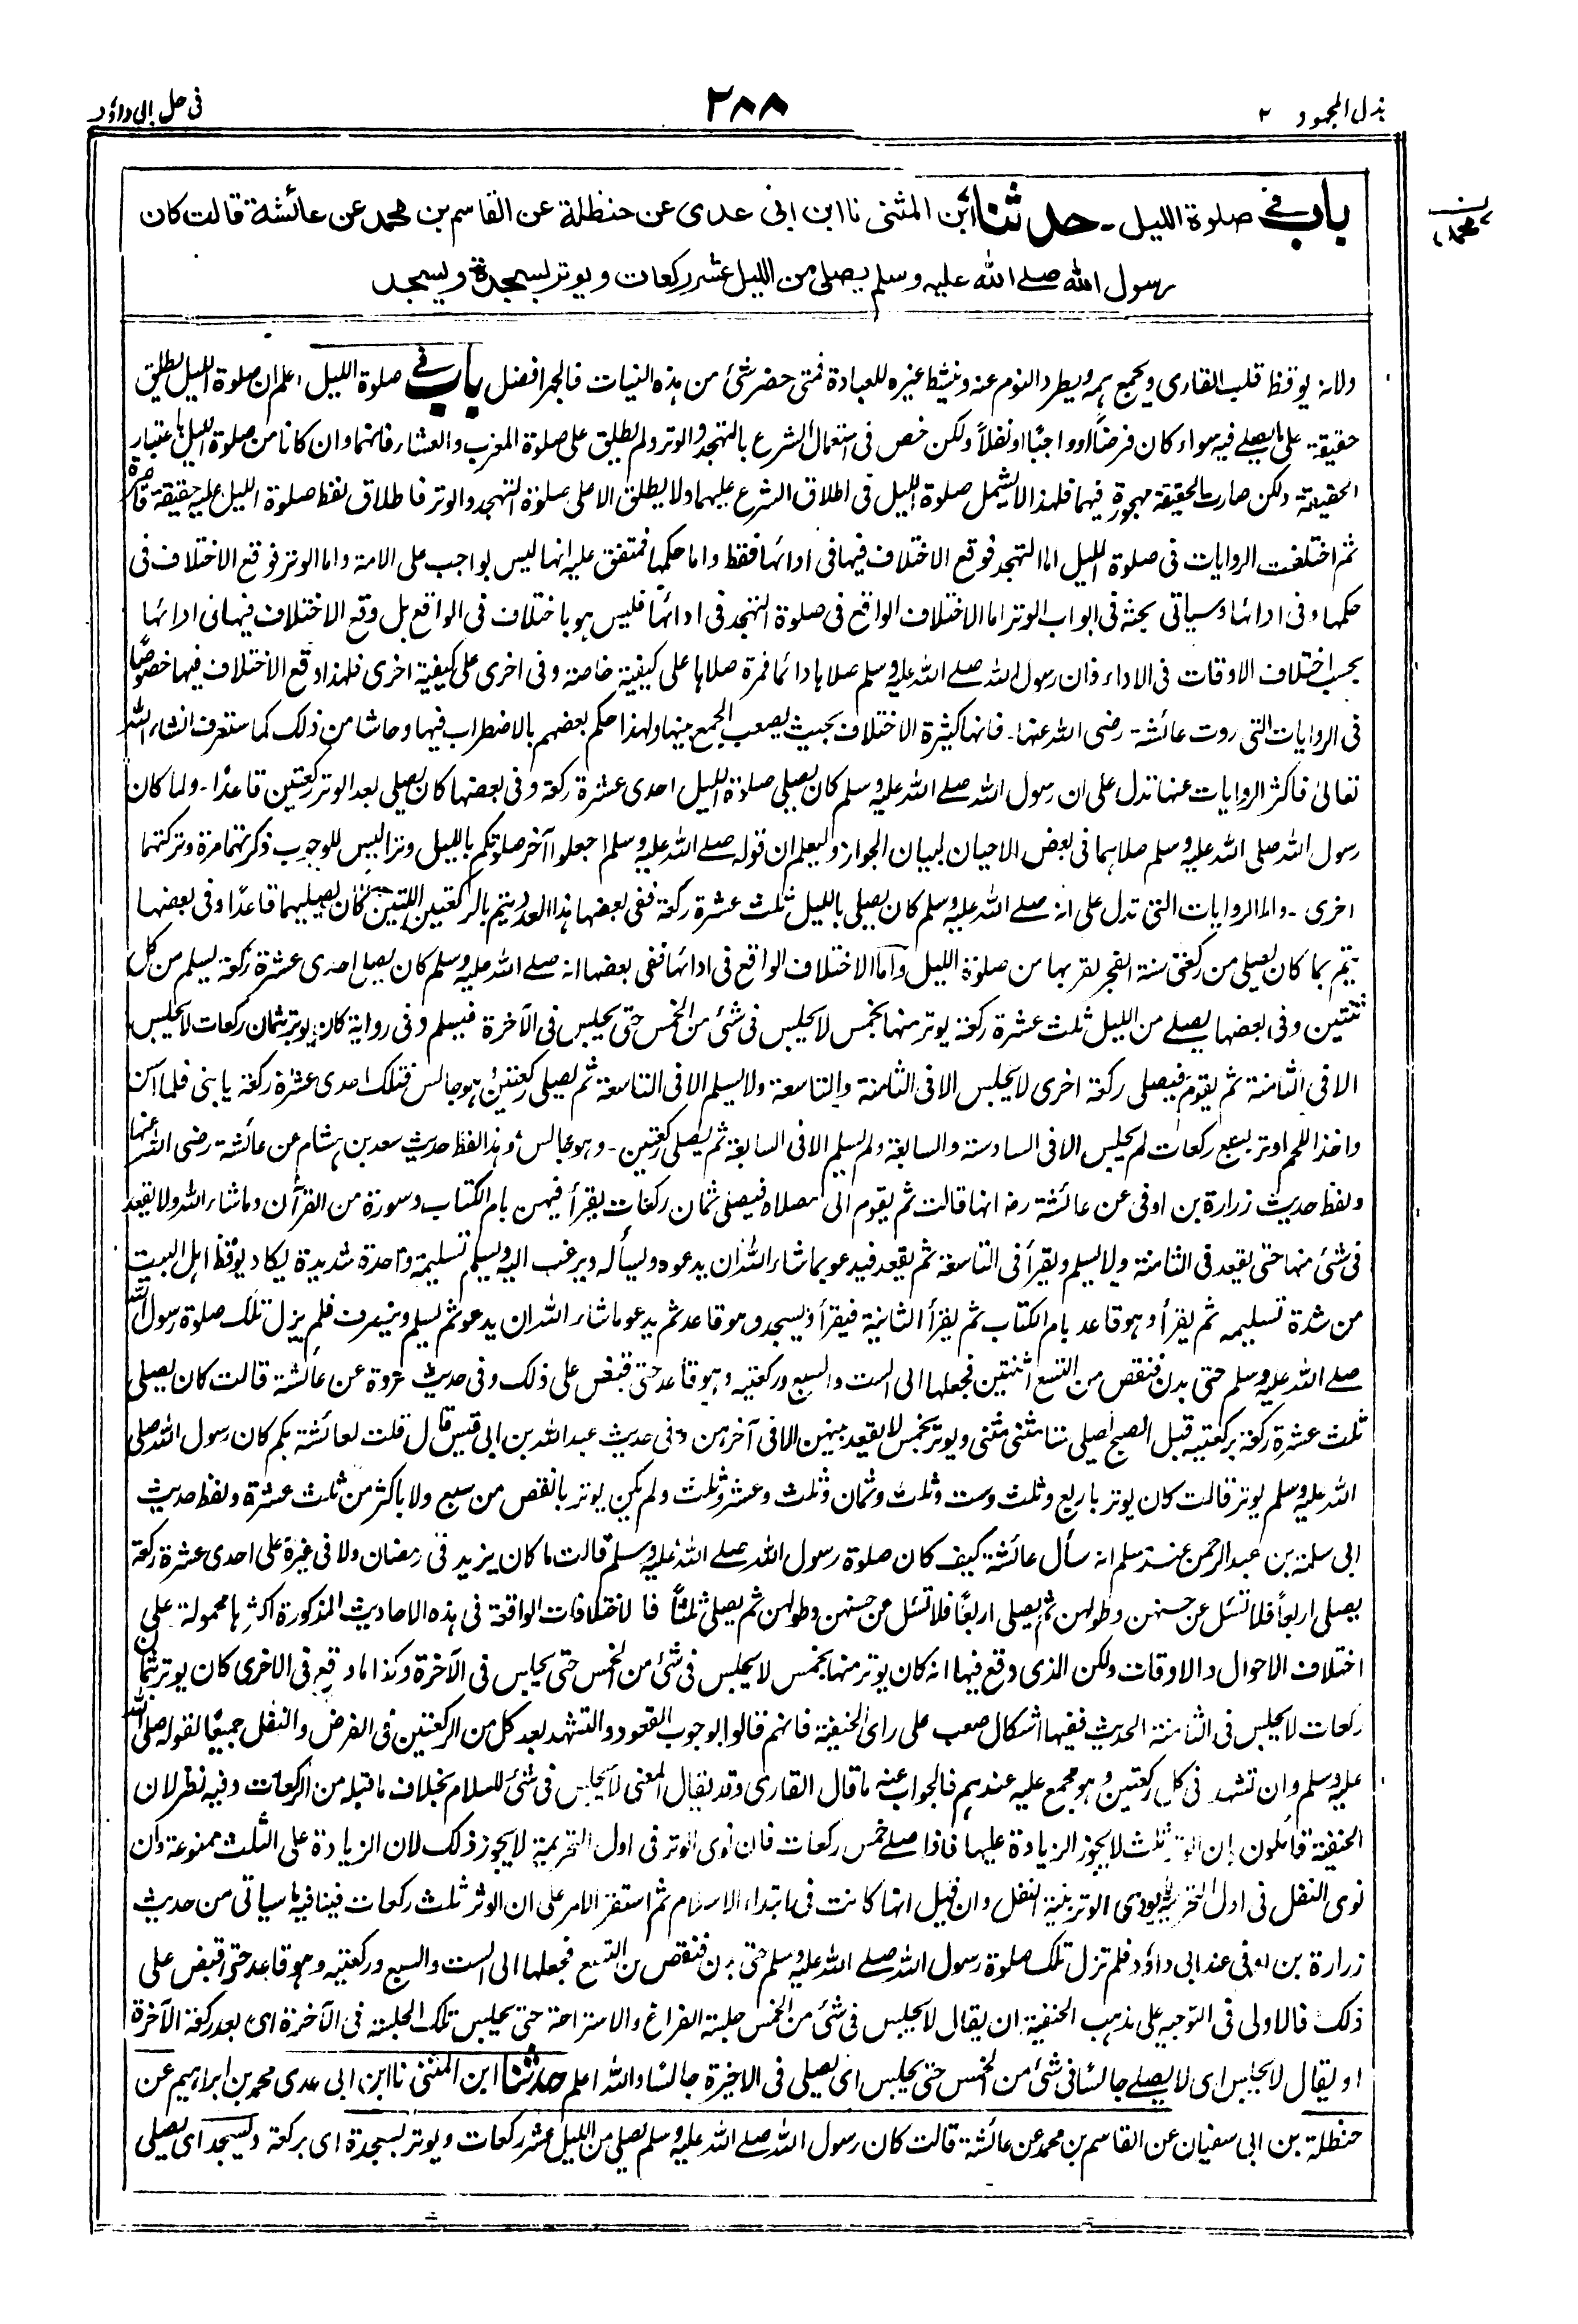 بذل المجهود ٢
٢٨٨
فى حل ابى داؤد
باب في صلوة الليل - حدثنا ابن المثنى نا ابن ابى عدى عن حنظلة عن القاسم بن محمد عن عائشة قالت كان
محمد
رسول الله صلے الله عليه وسلم يصلى من الليل عشر ركعات ويوتر بسجدة ويسجد
ولانه يوقظ قلب القارى ويجمع همه ويطرد النوم عنه وينشط غيره للعبادة فمتى حضر شئ من هذه النيات فالجهر افضل باب في صلوة الليل ، اعلم ان صلوة الليل يطلق
حقيقة على ما يصلے فيه سواء كان فرضاً او واجبًا او نفلاً ولكن خص فى استعمال الشرع بالتهجد والوتر ولم يطلق على صلوة المغرب والعشاء فانهما وان كانا من صلوة الليل باعتبار
الحقيقة ولكن صارت الحقيقة مهجورة فيهما فلهذا لا يشمل صلوة الليل فى اطلاق الشرع عليهما ولا يطلق الا على صلوة التهجد والوتر فاطلاق لفظ صلوة الليل عليه حقيقة قاصرة
ثم اختلفت الروايات فى صلوة الليل اما التهجد فوقع الاختلاف فيها فى ادائها فقط واما حكمها فمتفق عليه انها ليس بواجب على الامة واما الوتر فوقع الاختلاف فى
حكمها وفى ادائها وسياتى بحثه فى ابواب الوتر اما الاختلاف الواقع فى صلوة التهجد فى ادائها فليس هو باختلاف فى الواقع بل وقع الاختلاف فيها فى ادائها
بحسب اختلاف الاوقات فى الاداء فان رسول الله صلے الله عليه وسلم صلاها دائما فمرة صلاها على كيفية خاصة وفى اخرى على كيفية اخرى فلهذا وقع الاختلاف فيها خصوصًا
فى الروايات التى روت عائشة رضى الله عنها - فانها كثيرة الاختلاف بحيث يصعب الجمع بينها ولهذا حكم بعضهم بالاضطراب فيها وحاشا من ذلك كما ستعرف انشاء الله
تعالى فاكثر الروايات عنها تدل على ان رسول الله صلے الله عليه وسلم كان يصلى صلوة الليل احدى عشرة ركعة وفى بعضها كان يصلى بعد الوتر ركعتين قاعدًا - ولما كان
رسول الله صلى الله عليه وسلم صلاهما فى بعض الاحيان لبيان الجواز وليعلم ان قوله صلے الله عليه وسلم اجعلوا آخر صلوتكم بالليل وترا ليس للوجوب ذكرتهما مرة وتركتهما
اخرى - واما الروايات التى تدل على انه صلے الله عليه وسلم كان يصلى بالليل ثلث عشرة ركعة ففى بعضها هذا العدد يتم بالركعتين اللتين كان يصليهما قاعدًا وفى بعضها
يتم بما كان يصلى من ركعتى سنة الفجر بقربها من صلوة الليل واما الاختلاف الواقع فى ادائها ففى بعضها انه صلے الله عليه وسلم كان يصلى احدى عشرة ركعة يسلم من كل
ثنتين وفى بعضها يصلے من الليل ثلث عشرة ركعة يوتر منها بخمس لا يجلس فى شئ من الخمس حتى يجلس فى الآخرة فيسلم وفى رواية كان يوتر بثمان ركعات لا يجلس
الا فى الثامنة ثم يقوم فيصلى ركعة اخرى لا يجلس الا فى الثامنة والتاسعة ولا يسلم الا فى التاسعة ثم يصلى ركعتين وهو جالس فتلك احدى عشرة ركعة يا بنى فلما اسن
واخذ اللحم اوتر بسبع ركعات لم يجلس الا فى السادسة والسابعة ولم يسلم الا فى السابعة ثم يصلى ركعتين - وهو جالس وهذا لفظ حديث سعد بن هشام عن عائشة رضى الله عنها
ولفظ حديث زرارة بن اوفى عن عائشة رض انها قالت ثم يقوم الى مصلاه فيصلى ثمان ركعات يقرأ فيهن بام الكتاب وسورة من القرآن وما شاء الله ولا يقعد
فى شئ منها حتى يقعد فى الثامنة ولا يسلم ويقرأ فى التاسعة ثم يقعد فيدعو بما شاء الله ان يدعوه ويسأله ويرغب اليه ويسلم تسليمة واحدة شديدة يكاد يوقظ اهل البيت
من شدة تسليمه ثم يقرأ وهو قاعد بام الكتاب ثم يقرأ الثانية فيقرأ ويسجد وهو قاعد ثم يدعو ما شاء الله ان يدعو ثم يسلم وينصرف فلم يزل تلك صلوة رسول الله
صلے الله عليه وسلم حتى بدن فنقص من التسع اثنتين فجعلها الى الست والسبع وركعتيه وهو قاعد حتى قبض على ذلك وفى حديث عروة عن عائشة قالت كان يصلى
ثلث عشرة ركعة بركعتيه قبل الصبح يصلى ستا مثنى مثنى ويوتر بخمس لا يقعد بينهن الا فى آخرهن وفى حديث عبد الله بن ابى قيس قال قلت لعائشة بكم كان رسول الله صلى
الله عليه وسلم يوتر قالت كان يوتر باربع وثلث وست وثلث وثمان وثلث وعشر وثلث ولم يكن يوتر بانقص من سبع ولا باكثر من ثلث عشرة ولفظ حديث
ابى سلمة بن عبد الرحمن عند مسلم انه سأل عائشة كيف كان صلوة رسول الله صلے الله عليه وسلم قالت ما كان يزيد فى رمضان ولا فى غيره على احدى عشرة ركعة
يصلى اربعاً فلا تسئل عن حسنهن وطولهن ثم يصلى اربعًا فلا تسئل عن حسنهن وطولهن ثم يصلى ثلثًا فالاختلافات الواقعة فى هذه الاحاديث المذكورة اكثرها محمولة على
اختلاف الاحوال والاوقات ولكن الذى وقع فيها انه كان يوتر منها بخمس لا يجلس فى شئ من الخمس حتى يجلس فى الآخرة وكذا ما وقع فى الاخرى كان يوتر بثمان
ركعات لا يجلس فى الثامنة الحديث ففيها اشكال صعب على راى الحنفية فانهم قالوا بوجوب القعود والتشهد بعد كل من الركعتين فى الفرض والنفل جميعًا لقوله صلى الله
عليه وسلم وان تشهد فى كل ركعتين وهو مجمع عليه عندهم فالجواب عنه ما قال القارى وقد يقال المعنى لا يجلس فى شئ للسلام بخلاف ما قبله من الركعات وفيه نظر لان
الحنفية قائلون بان الوتر ثلث لا يجوز الزيادة عليها فاذا صلے خمس ركعات فان نوى الوتر فى اول التحريمة لا يجوز ذلك لان الزيادة على الثلث ممنوعة وان
نوى النفل فى اول التحريمة لا يودى الوتر بنية النفل وان قيل انها كانت فى ابتداء الاسلام ثم استقر الامر على ان الوتر ثلث ركعات فينافيه ما سياتى من حديث
زرارة بن اوفى عند ابى داؤد فلم تزل تلك صلوة رسول الله صلے الله عليه وسلم حتى بدن فنقص من التسع فجعلها الى الست والسبع وركعتيه وهو قاعد حتى قبض على
ذلك فالاولى فى التوجيه على مذهب الحنفية ان يقال لا يجلس فى شئ من الخمس جلسة الفراغ والاستراحة حتى يجلس تلك الجلسة فى الآخرة اى بعد ركعة الآخرة
او يقال لا يجلس اى لا يصلے جالسًا فى شئ من الخمس حتى يجلس اى يصلى فى الاخيرة جالسًا والله اعلم حدثنا ابن المثنى نا ابن ابى عدى محمد بن ابراهيم عن
حنظلة بن ابى سفيان عن القاسم بن محمد عن عائشة قالت كان رسول الله صلے الله عليه وسلم يصلى من الليل عشر ركعات ويوتر بسجدة اى بركعة ويسجد اى يصلى